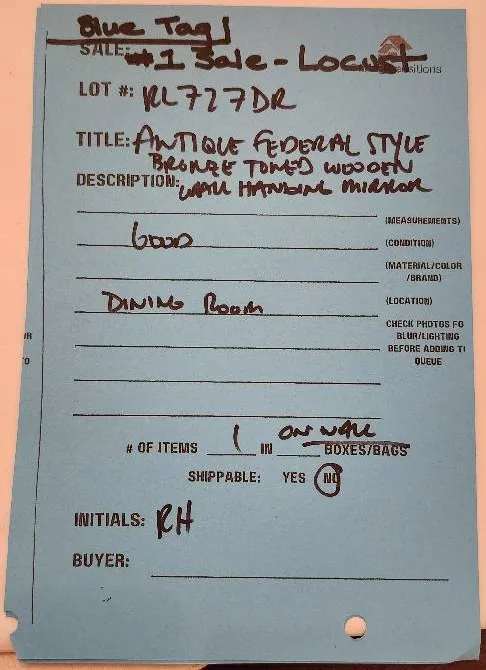 Blue Tag
SALE: #1 Sale - Locust
LOT #: RL727DR
TITLE: ANTIQUE FEDERAL STYLE
BRONZE TONED WOODEN
DESCRIPTION: WALL HANGING MIRROR
(MEASUREMENTS)
GOOD (CONDITION)
(MATERIAL/COLOR
/BRAND)
DINING ROOM (LOCATION)
CHECK PHOTOS FO
BLUR/LIGHTING
BEFORE ADDING TI
QUEUE
# OF ITEMS 1 IN ON WALL BOXES/BAGS
SHIPPABLE: YES NO
INITIALS: RH
BUYER: